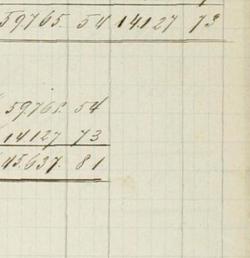 59765. 54 14127 73
59765. 54
14127 73
45.637. 81